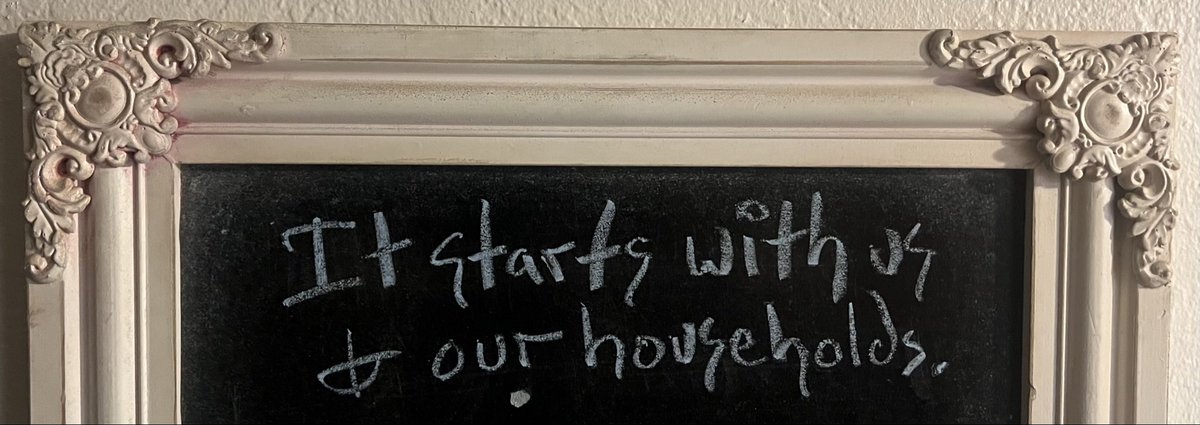 It starts with us
& our households.